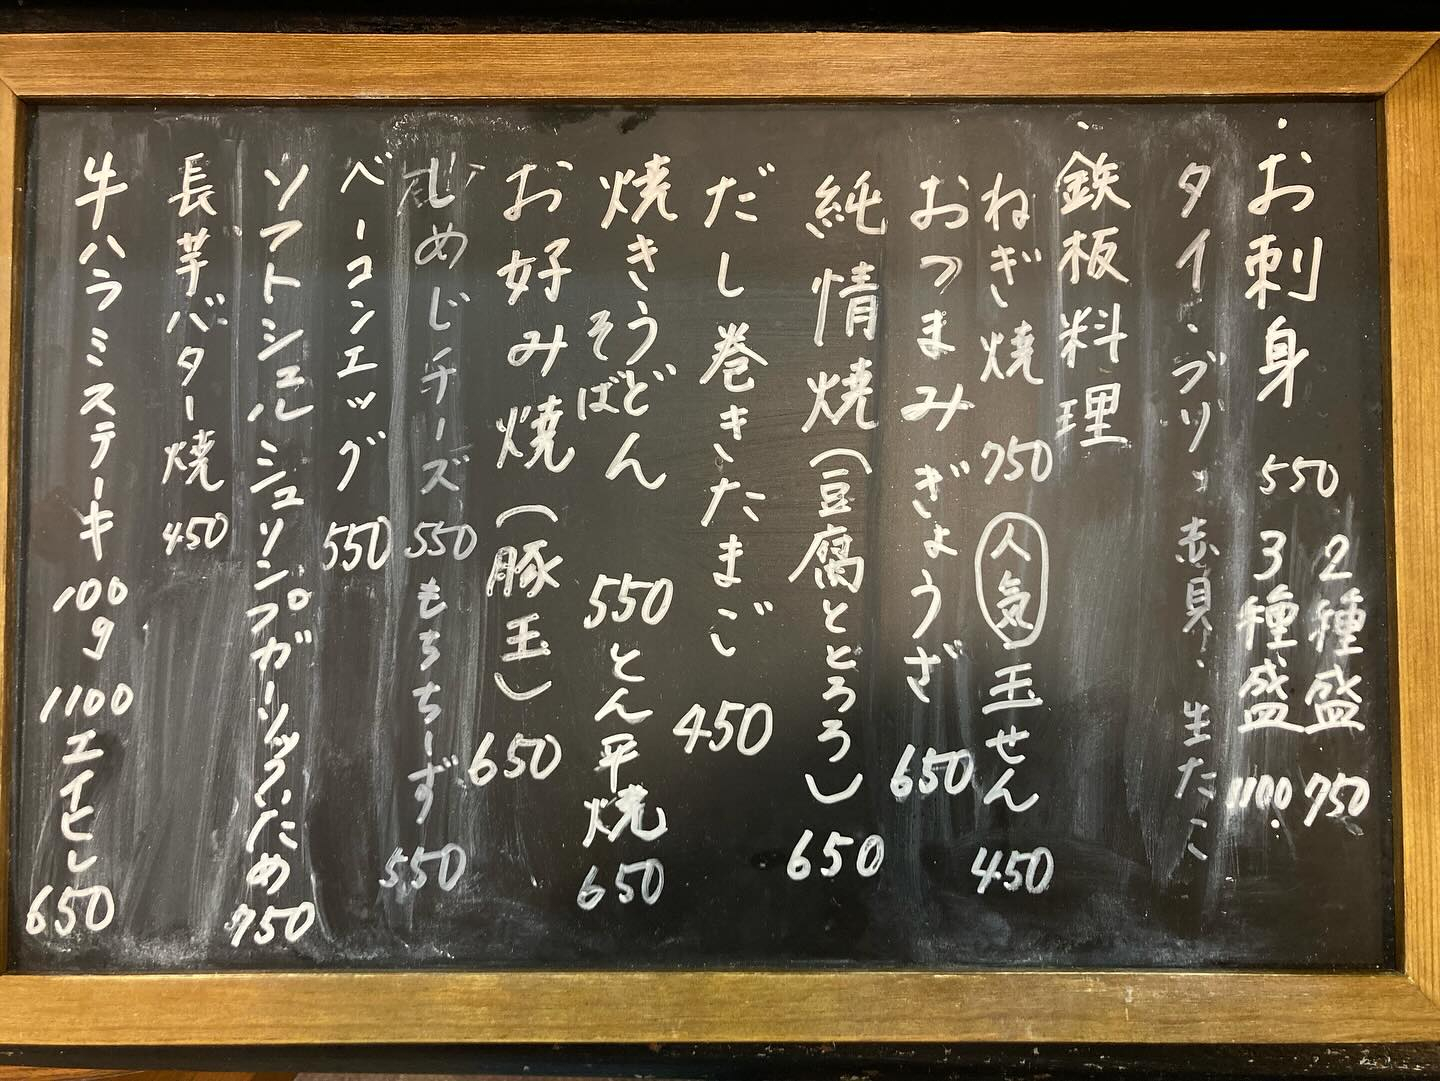 ・お刺身 550 2種盛 750
3種盛 1100.
タイ・ブリ・赤貝・生たこ
・鉄板料理
ねぎ焼 750 人気 玉せん 450
おつまみぎょうざ 650
純情焼(豆腐ととろろ) 650
だし巻きたまご 450
焼きうどん 550 とん平焼 650
そば
お好み焼(豚玉) 650
しめじチーズ 550 もちちーず 550
ベーコンエッグ 550
ソフトシェルシュリンプガーリックいため 750
長芋バター焼 450
牛ハラミステーキ 100g 1100 エイヒレ 650